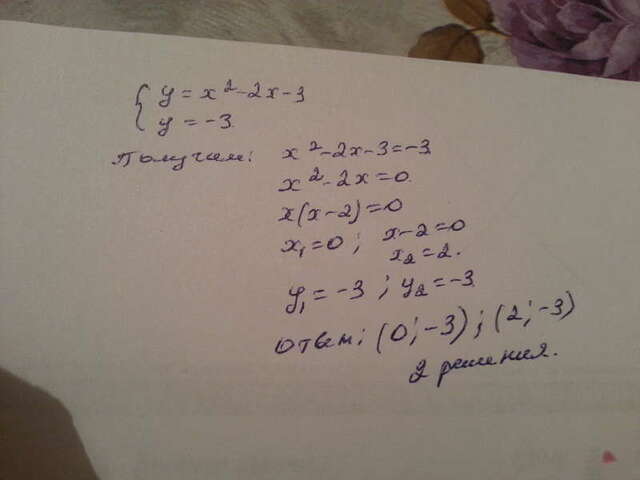 { y = x² - 2x - 3
y = -3.
Получим: x² - 2x - 3 = -3
x² - 2x = 0.
x(x - 2) = 0
x₁ = 0 ; x - 2 = 0
x₂ = 2.
y₁ = -3 ; y₂ = -3.
Ответ: (0; -3) ; (2; -3)
2 решения.